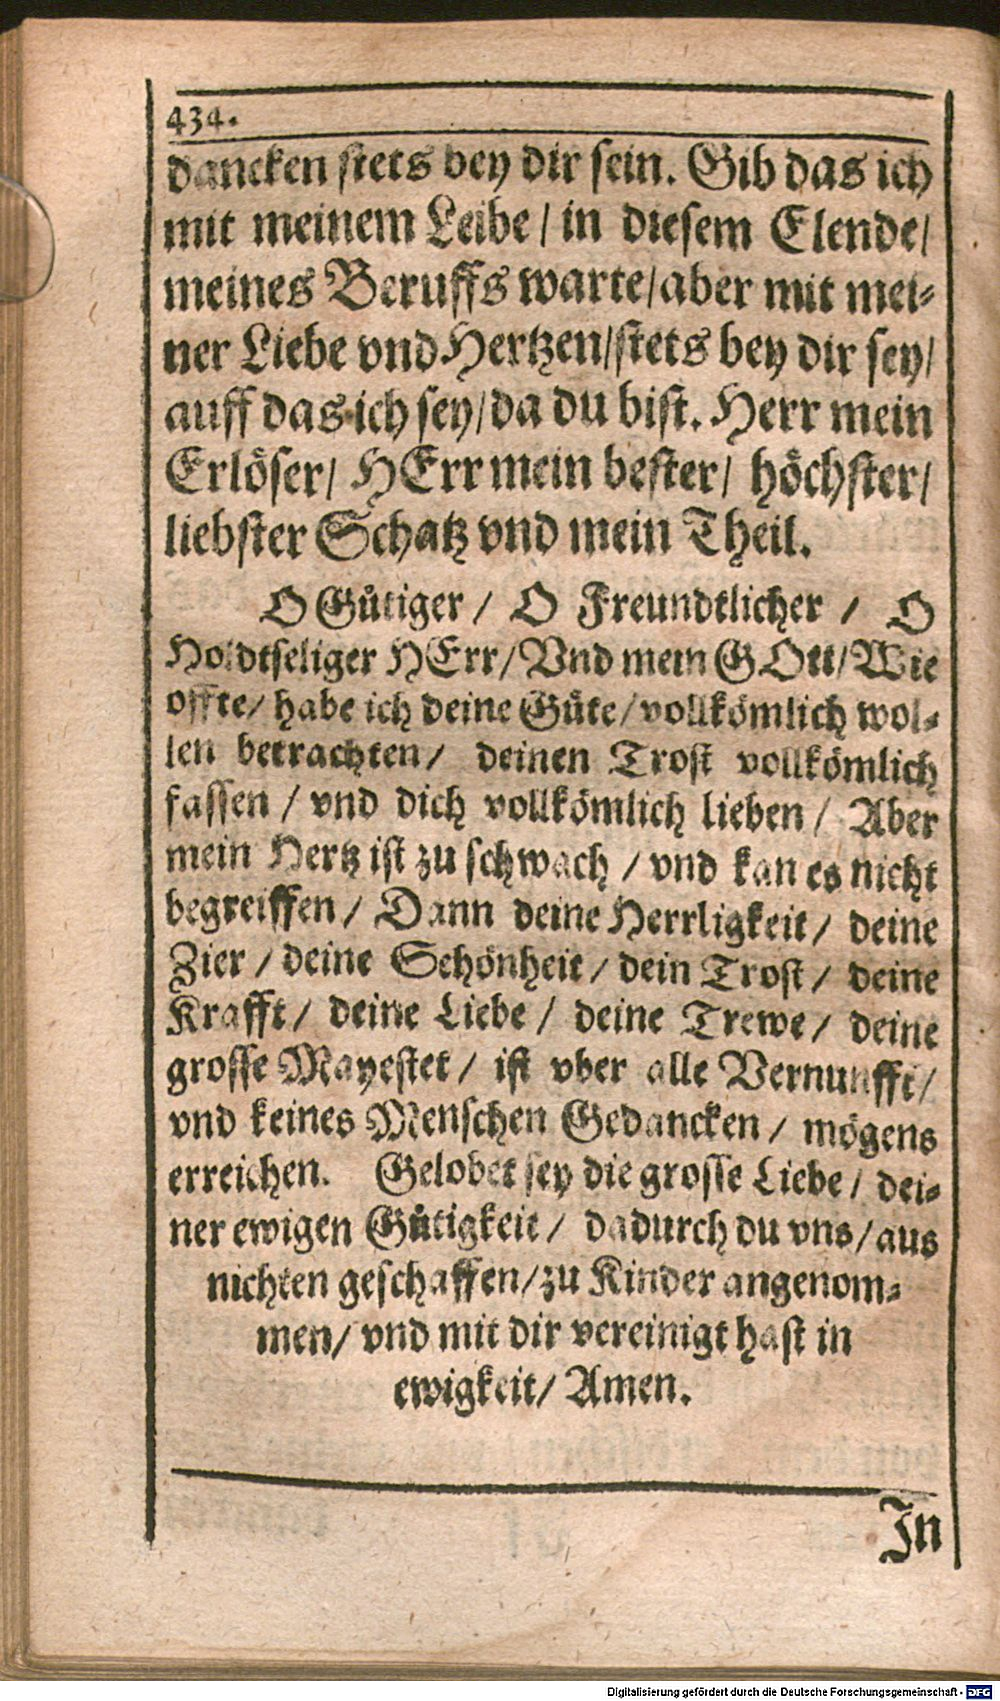 434.
dancken stets bey dir sein. Gib das ich
mit meinem Leibe / in diesem Elende /
meines Beruffs warte / aber mit mei⸗
ner Liebe vnd Hertzen / stets bey dir sey /
auff das ich sey / da du bist. Herr mein
Erlöser / HErr mein bester / höchster /
liebster Schatz vnd mein Theil.
O Gůtiger / O Freundtlicher / O
Holdtseliger HErr / Vnd mein GOtt / Wie
offte / habe ich deine Gůte / vollkömlich wol⸗
len betrachten / deinen Trost vollkömlich
fassen / vnd dich vollkömlich lieben / Aber
mein Hertz ist zu schwach / vnd kan es nicht
begreiffen / Dann deine Herrligkeit / deine
Zier / deine Schönheit / dein Trost / deine
Krafft / deine Liebe / deine Trewe / deine
grosse Mayestet / ist vber alle Vernunfft /
vnd keines Menschen Gedancken / mögens
erreichen. Gelobet sey die grosse Liebe / dei⸗
ner ewigen Gůtigkeit / dadurch du vns / aus
nichten geschaffen / zu Kinder angenom⸗
men / vnd mit dir vereinigt hast in
ewigkeit / Amen.
In
Digitalisierung gefördert durch die Deutsche Forschungsgemeinschaft - DFG